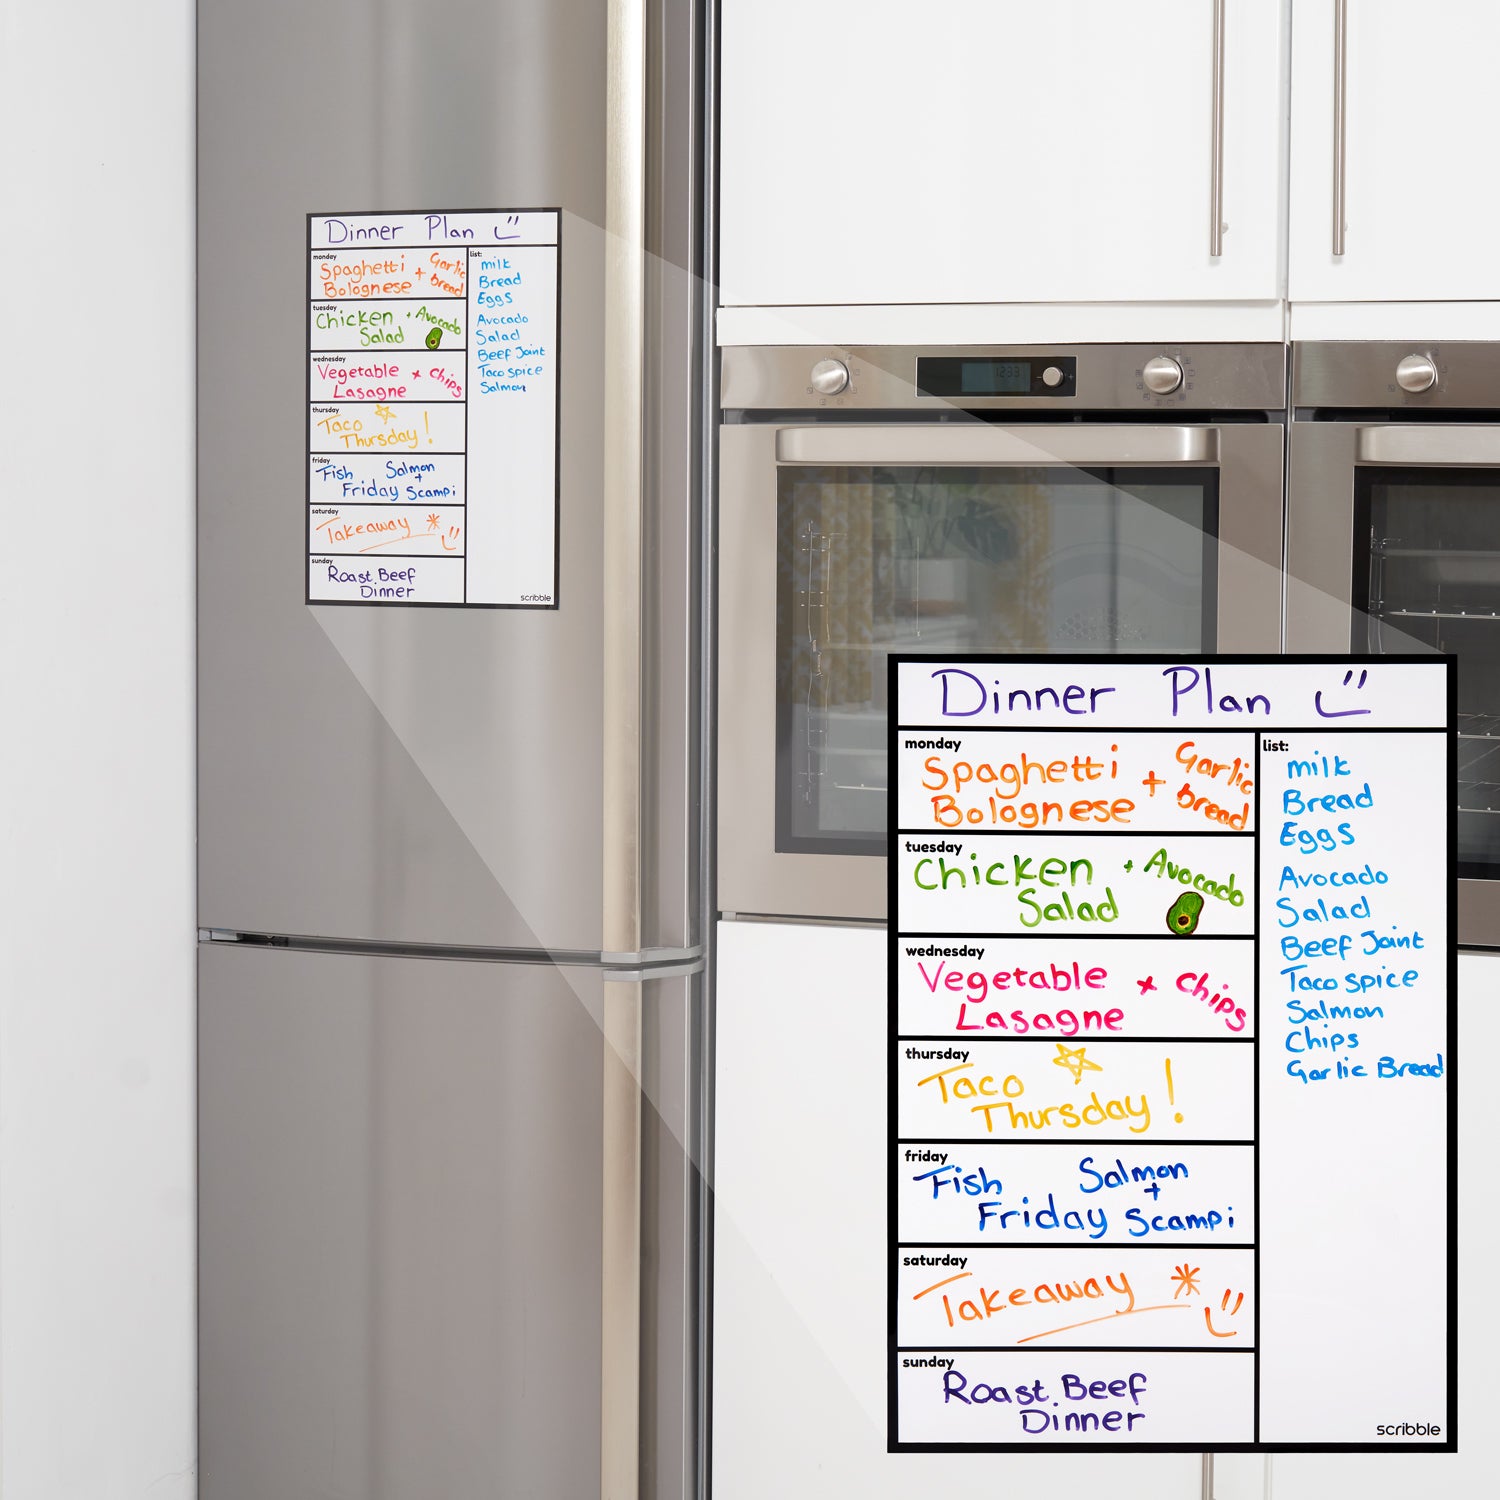 Dinner Plan
monday
Spaghetti + Garlic
Bolognese bread
tuesday
Chicken + Avocado
Salad
wednesday
Vegetable + Chips
Lasagne
thursday
Taco
Thursday!
friday
Fish Salmon
+
Friday Scampi
saturday
Takeaway
sunday
Roast Beef
Dinner
list:
milk
Bread
Eggs
Avocado
Salad
Beef Joint
Taco spice
Salmon
scribble
12:33
Dinner Plan
monday
Spaghetti + Garlic
Bolognese bread
tuesday
Chicken + Avocado
Salad
wednesday
Vegetable + Chips
Lasagne
thursday
Taco
Thursday!
friday
Fish Salmon
+
Friday Scampi
saturday
Takeaway
sunday
Roast Beef
Dinner
list:
milk
Bread
Eggs
Avocado
Salad
Beef Joint
Taco spice
Salmon
Chips
Garlic Bread
scribble